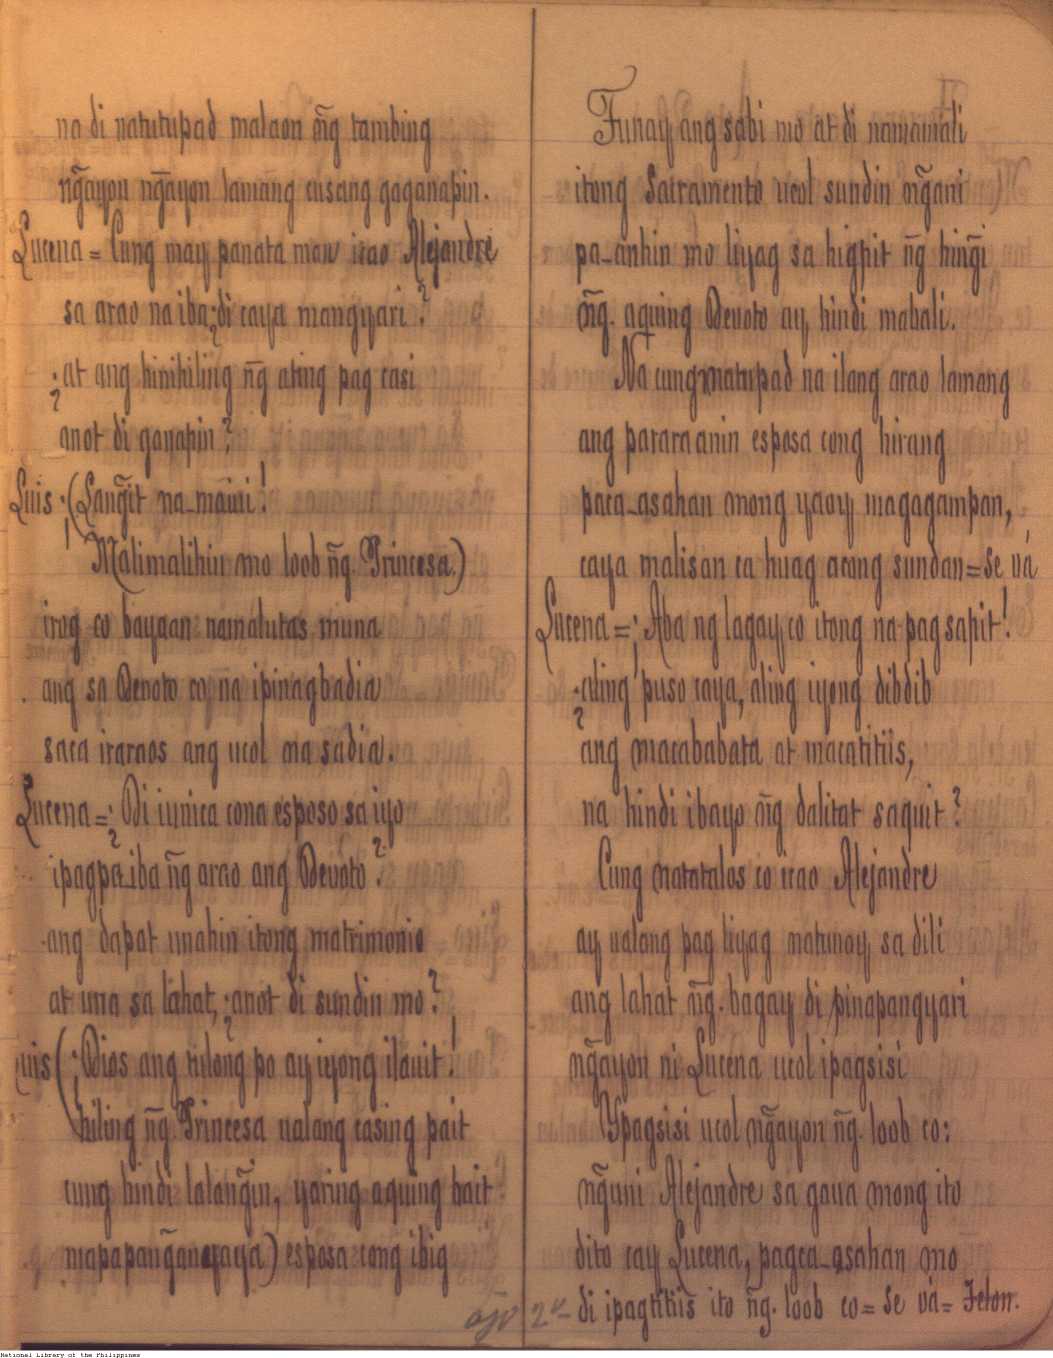 na di natutupad malaon ñg tambing
ng̃ayon ng̃ayon lamang cusang gaganapin.
Lucena = Cung may panata man icao Alejandre
sa arao na iba ¿di caya mangyari?
¿at ang hinihiling ng̃ ating pag casi
anot di ganapin?
Luis ¡(Lang̃it na maaui!
Malimalihin mo loob ng̃. Princesa.)
irog co bayaan namalutas muna
ang sa Devoto co na ipinagbadia
saca iraraos ang ucol ma sadia.
Lucena = ¿Di iunica cona esposo sa iyo
ipagpa-iba ng̃ arao ang Devoto?
ang dapat unahin itong matrimonio
at una sa lahat, ¿anot di sundin mo?
Luis (¡Dios ang tulong po ay iyong ilauit!
hiling ng̃ Princesa ualang casing pait
cung hindi lalang̃in, yaring aquing bait
mapapang̃anyaya) esposa cong ibig
Tunay ang sabi mo at di namamali
itong Sacramento ucol sundin ng̃ani
pa-anhin mo liyag sa higpit ng̃ hing̃i
ng̃. aquing Devoto ay hindi mabali.
Na cung matupad na ilang arao lamang
ang pararaanin esposa cong hirang
paca-asahan onong yaoy magagampan,
caya malisan ca huag acong sundan = Se vá
Lucena = ¡Aba ng lagay co itong na pag sapit!
¿aling puso caya, aling iyong dibdib
ang macababata at macatitiis,
na hindi ibayo ng̃ dalitat saquit?
Cung natatalos co icao Alejandre
ay ualang pag liyag matunoy sa dili
ang lahat ng̃. bagay di pinapangyari
ng̃ayon ni Lucena ucol ipagsisi
Ypagsisi ucol ng̃ayon ng̃. loob co:
ng̃uni Alejandre sa gaua mong ito
dito cay Lucena, pagca-asahan mo
di ipagtitiis ito ng̃. loob co = Se vá = Telon.